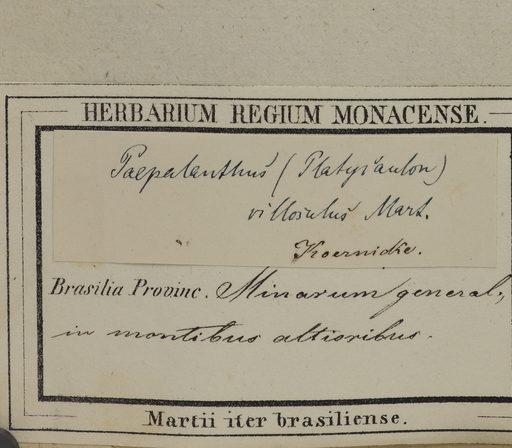 HERBARIUM REGIUM MONACENSE.
Paepalanthus (Platycaulon)
villosulus Mart.
Koernicke.
Brasilia Provinc. Minarum general.,
in montibus altioribus.
Martii iter brasiliense.